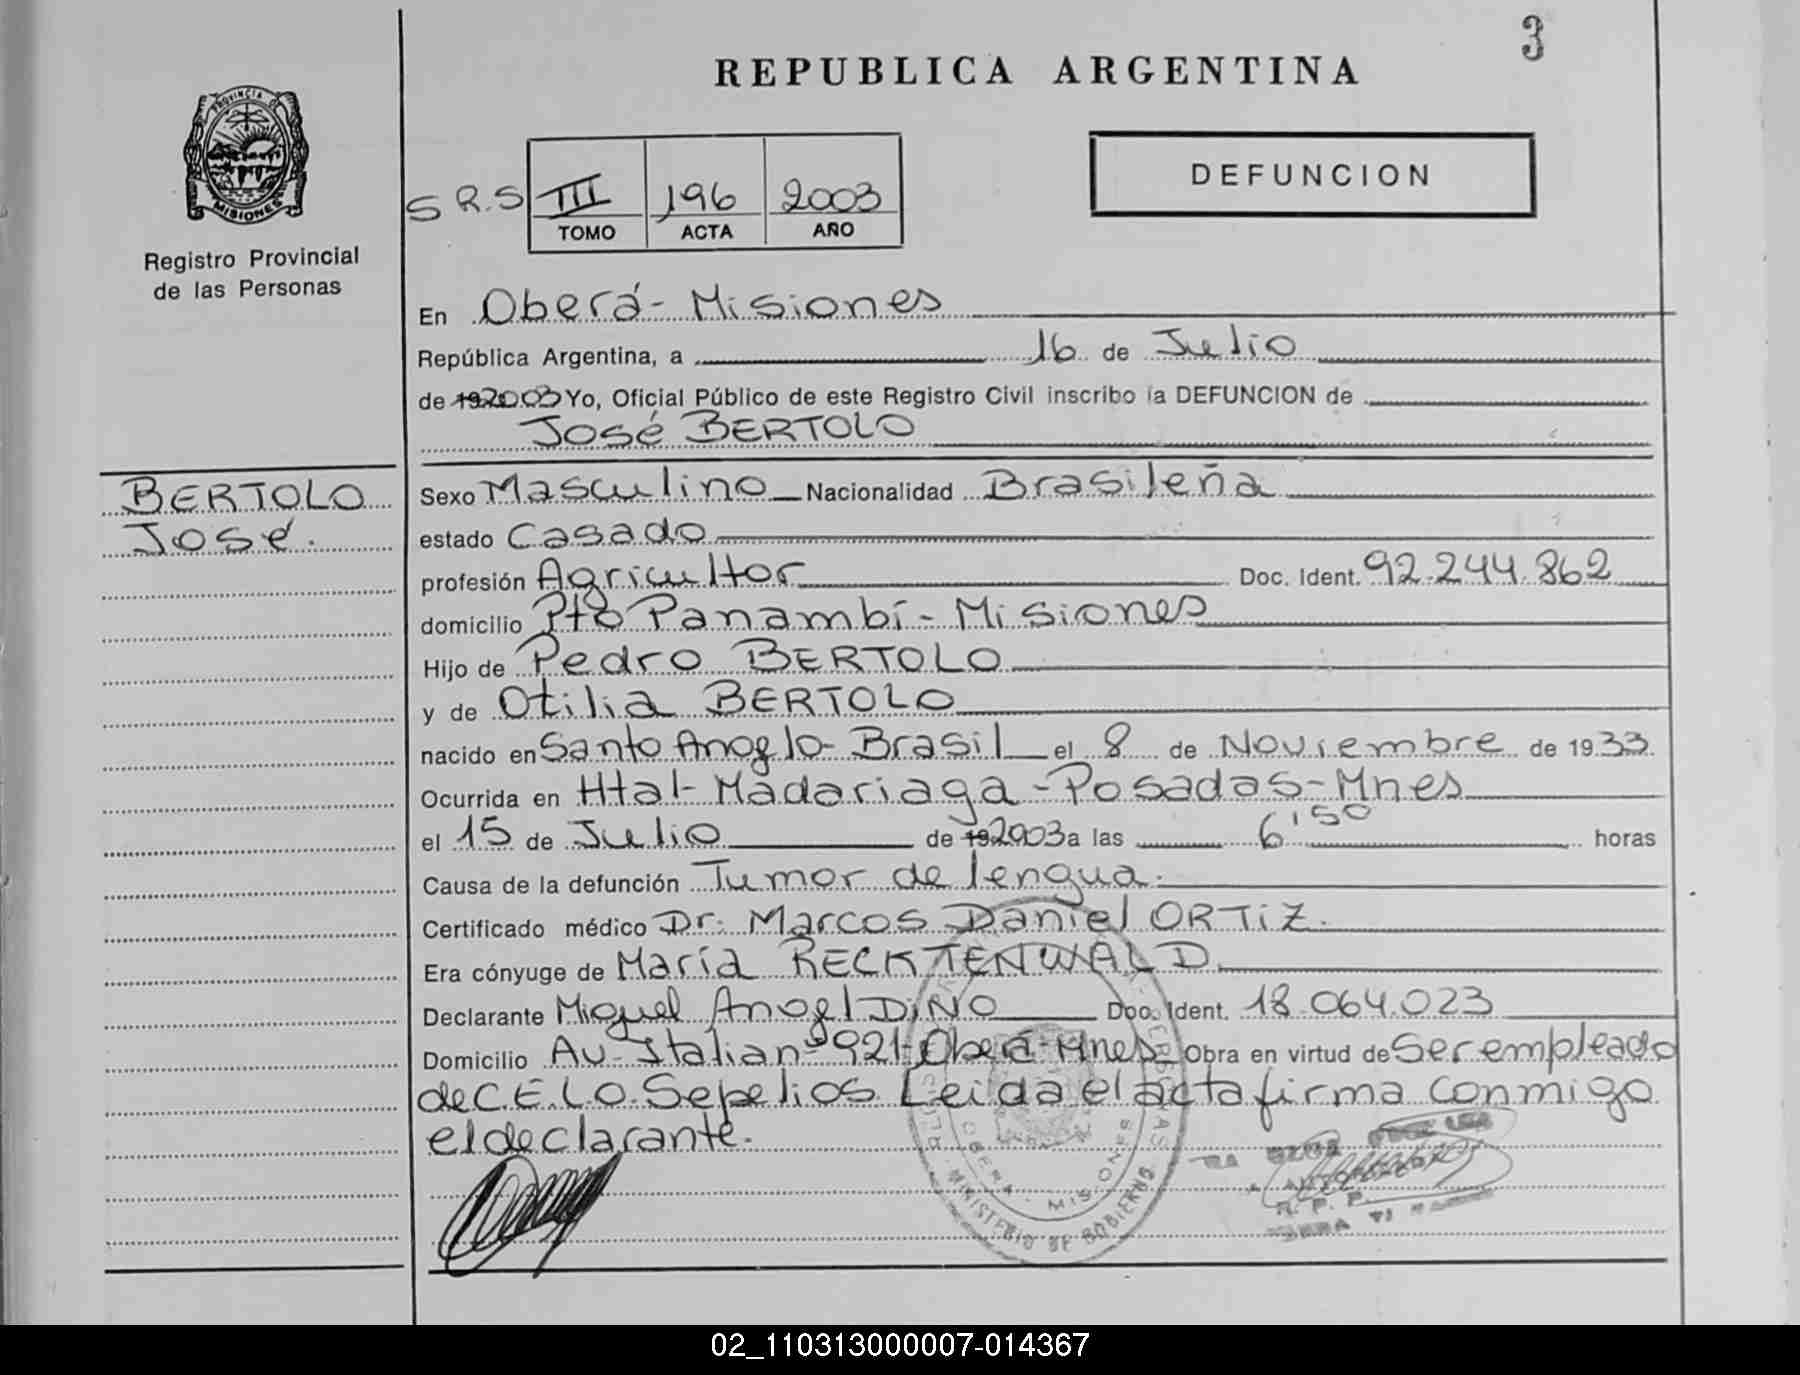 3
REPUBLICA ARGENTINA
PROVINCIA DE
MISIONES
Registro Provincial
de las Personas
S R.S III 196 2003
TOMO ACTA AÑO
DEFUNCION
En Oberá - Misiones
República Argentina, a 16 de Julio
de 192003 Yo, Oficial Público de este Registro Civil inscribo la DEFUNCION de
José BERTOLO
BERTOLO
José.
Sexo Masculino Nacionalidad Brasileña
estado Casado
profesión Agricultor Doc. Ident. 92.244.862
domicilio Pto Panambí - Misiones
Hijo de Pedro BERTOLO
y de Otilia BERTOLO
nacido en Santo Angelo - Brasil el 8 de Noviembre de 1933
Ocurrida en Htal - Madariaga - Posadas - Mnes
el 15 de Julio de 192003 a las 6'50 horas
Causa de la defunción Tumor de lengua.
Certificado médico Dr. Marcos Daniel ORTIZ.
Era cónyuge de María RECKTENWALD
Declarante Miguel Angel DINO Doc. Ident. 18.064.023
Domicilio Av. Italia nº 921 - Oberá - Mnes Obra en virtud de Ser empleado
de C.E.L.O. Sepelios Leida el acta firma conmigo
el declarante.
OBERA - MISIONES
MINISTERIO DE GOBIERNO
R. P. P.
02_110313000007-014367